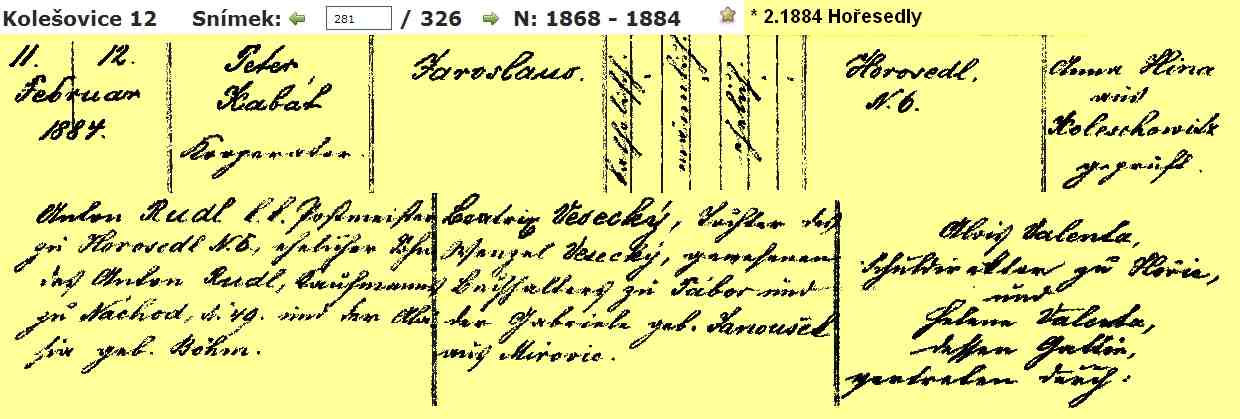 Kolešovice 12 Snímek: 281 / 326 N: 1868 - 1884 * 2.1884 Hořesedly
11. 12.
Februar
1884.
Peter
Kabát
Kooperator.
Jaroslaus.
katholisch.
männlich.
ehelich.
Horosedl.
N. 6.
Anna Hina
aus
Koleschowitz
geprüft.
Anton Rudl k. k. Postmeister
zu Horosedl N. 6, ehelicher Sohn
des Anton Rudl, Kaufmanns
zu Náchod, und der
geb. Böhm.
Beatrix Vesecký, Tochter des
Wenzel Vesecký, gewesenen
Buchhalters zu Tábor und
der Gabriele geb. Janoušek
aus Mirovic.
Alois Valenta,
Schuldirektor zu Hořic,
und
Helene Valenta,
dessen Gattin,
vertreten durch: